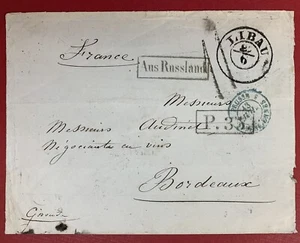 France
Aus Russland
LIBAU
6
Messieurs
Messieurs Audinet
P.35.
Négociants en vins
Bordeaux
Gironde